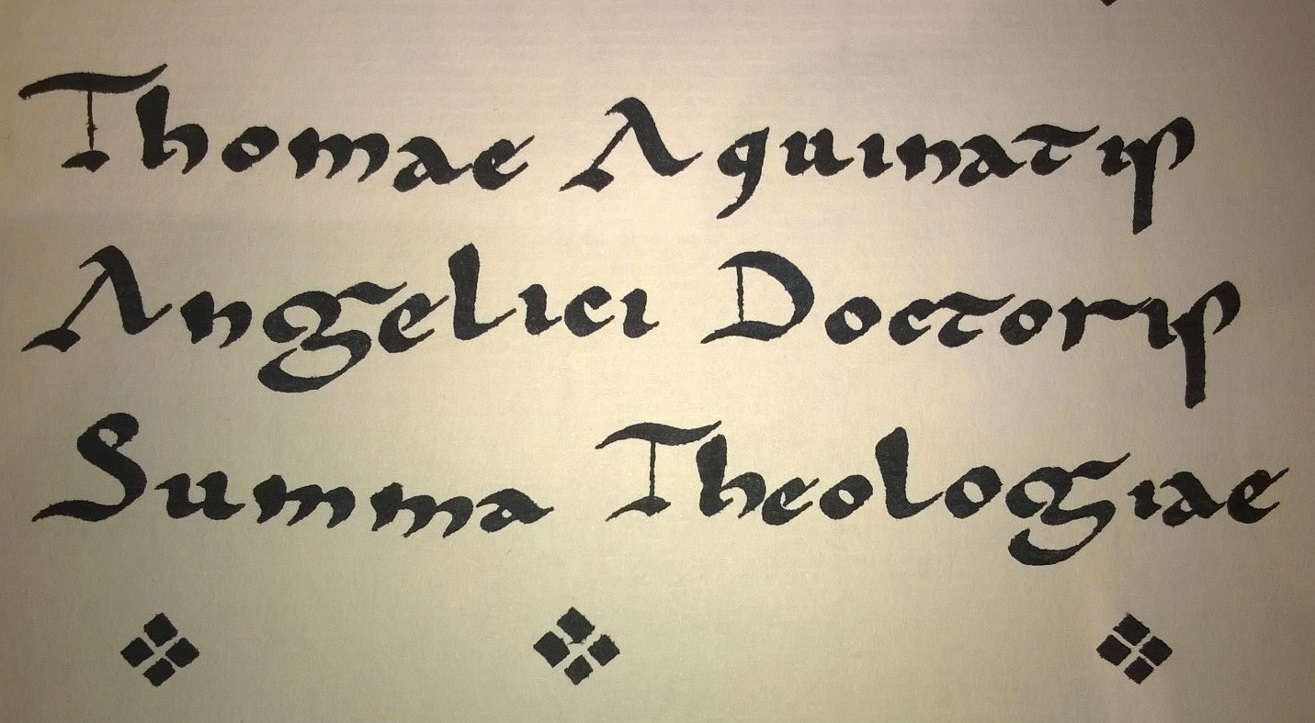 Thomae Aquinatis
Angelici Doctoris
Summa Theologiae